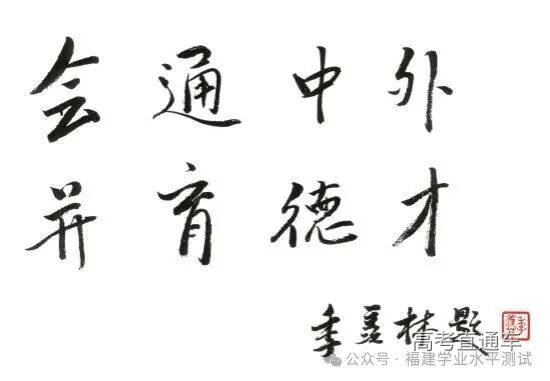 会通中外
并育德才
季羡林题
高考直通车
公众号·福建学业水平测试